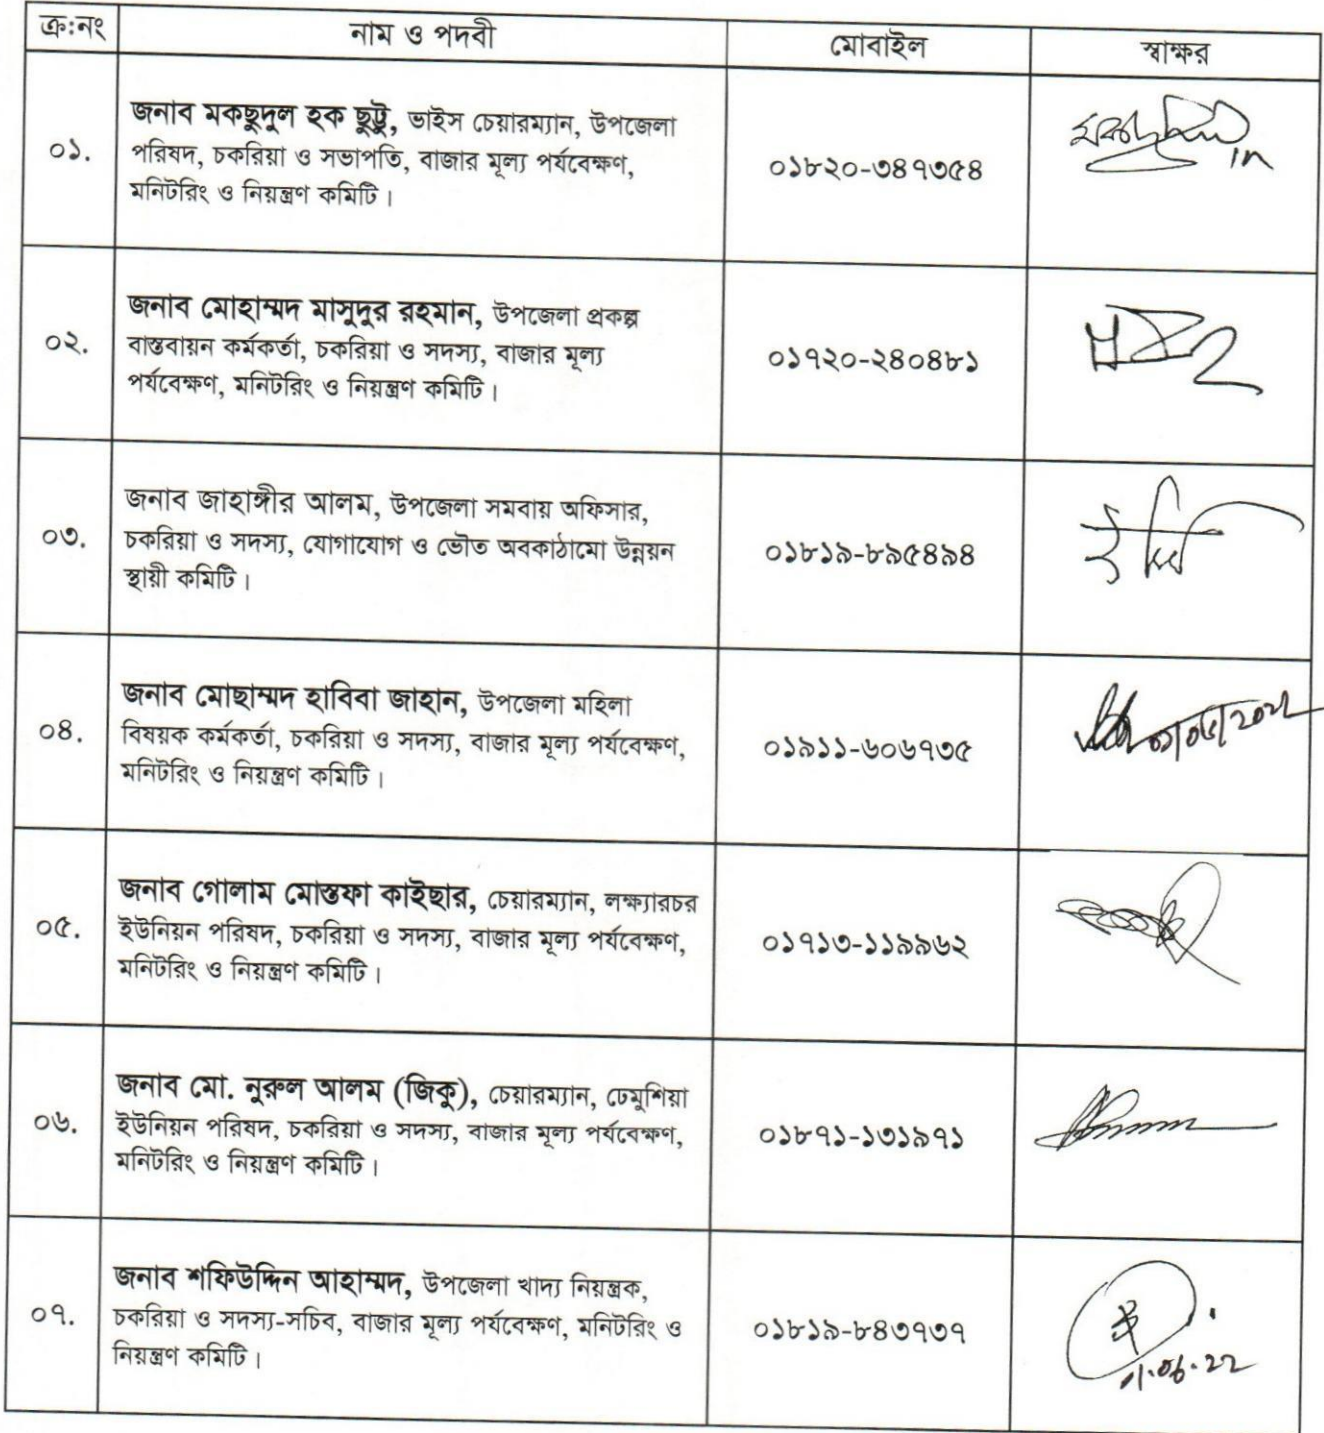 ক্র:নং নাম ও পদবী মোবাইল স্বাক্ষর
০১.
জনাব মকছুদুল হক ছুট্টু, ভাইস চেয়ারম্যান, উপজেলা
পরিষদ, চকরিয়া ও সভাপতি, বাজার মূল্য পর্যবেক্ষণ,
মনিটরিং ও নিয়ন্ত্রণ কমিটি।
০১৮২০-৩৪৭৩৫৪
০২.
জনাব মোহাম্মদ মাসুদুর রহমান, উপজেলা প্রকল্প
বাস্তবায়ন কর্মকর্তা, চকরিয়া ও সদস্য, বাজার মূল্য
পর্যবেক্ষণ, মনিটরিং ও নিয়ন্ত্রণ কমিটি।
০১৭২০-২৪০৪৮১
০৩.
জনাব জাহাঙ্গীর আলম, উপজেলা সমবায় অফিসার,
চকরিয়া ও সদস্য, যোগাযোগ ও ভৌত অবকাঠামো উন্নয়ন
স্থায়ী কমিটি।
০১৮১৯-৮৯৫৪৯৪
০৪.
জনাব মোছাম্মদ হাবিবা জাহান, উপজেলা মহিলা
বিষয়ক কর্মকর্তা, চকরিয়া ও সদস্য, বাজার মূল্য পর্যবেক্ষণ,
মনিটরিং ও নিয়ন্ত্রণ কমিটি।
০১৯১১-৬০৬৭৩৫
০৫.
জনাব গোলাম মোস্তফা কাইছার, চেয়ারম্যান, লক্ষ্যারচর
ইউনিয়ন পরিষদ, চকরিয়া ও সদস্য, বাজার মূল্য পর্যবেক্ষণ,
মনিটরিং ও নিয়ন্ত্রণ কমিটি।
০১৭১৩-১১৯৯৬২
০৬.
জনাব মো. নুরুল আলম (জিকু), চেয়ারম্যান, ঢেমুশিয়া
ইউনিয়ন পরিষদ, চকরিয়া ও সদস্য, বাজার মূল্য পর্যবেক্ষণ,
মনিটরিং ও নিয়ন্ত্রণ কমিটি।
০১৮৭১-১৩১৯৭১
০৭.
জনাব শফিউদ্দিন আহাম্মদ, উপজেলা খাদ্য নিয়ন্ত্রক,
চকরিয়া ও সদস্য-সচিব, বাজার মূল্য পর্যবেক্ষণ, মনিটরিং ও
নিয়ন্ত্রণ কমিটি।
০১৮১৯-৮৪৩৭৩৭